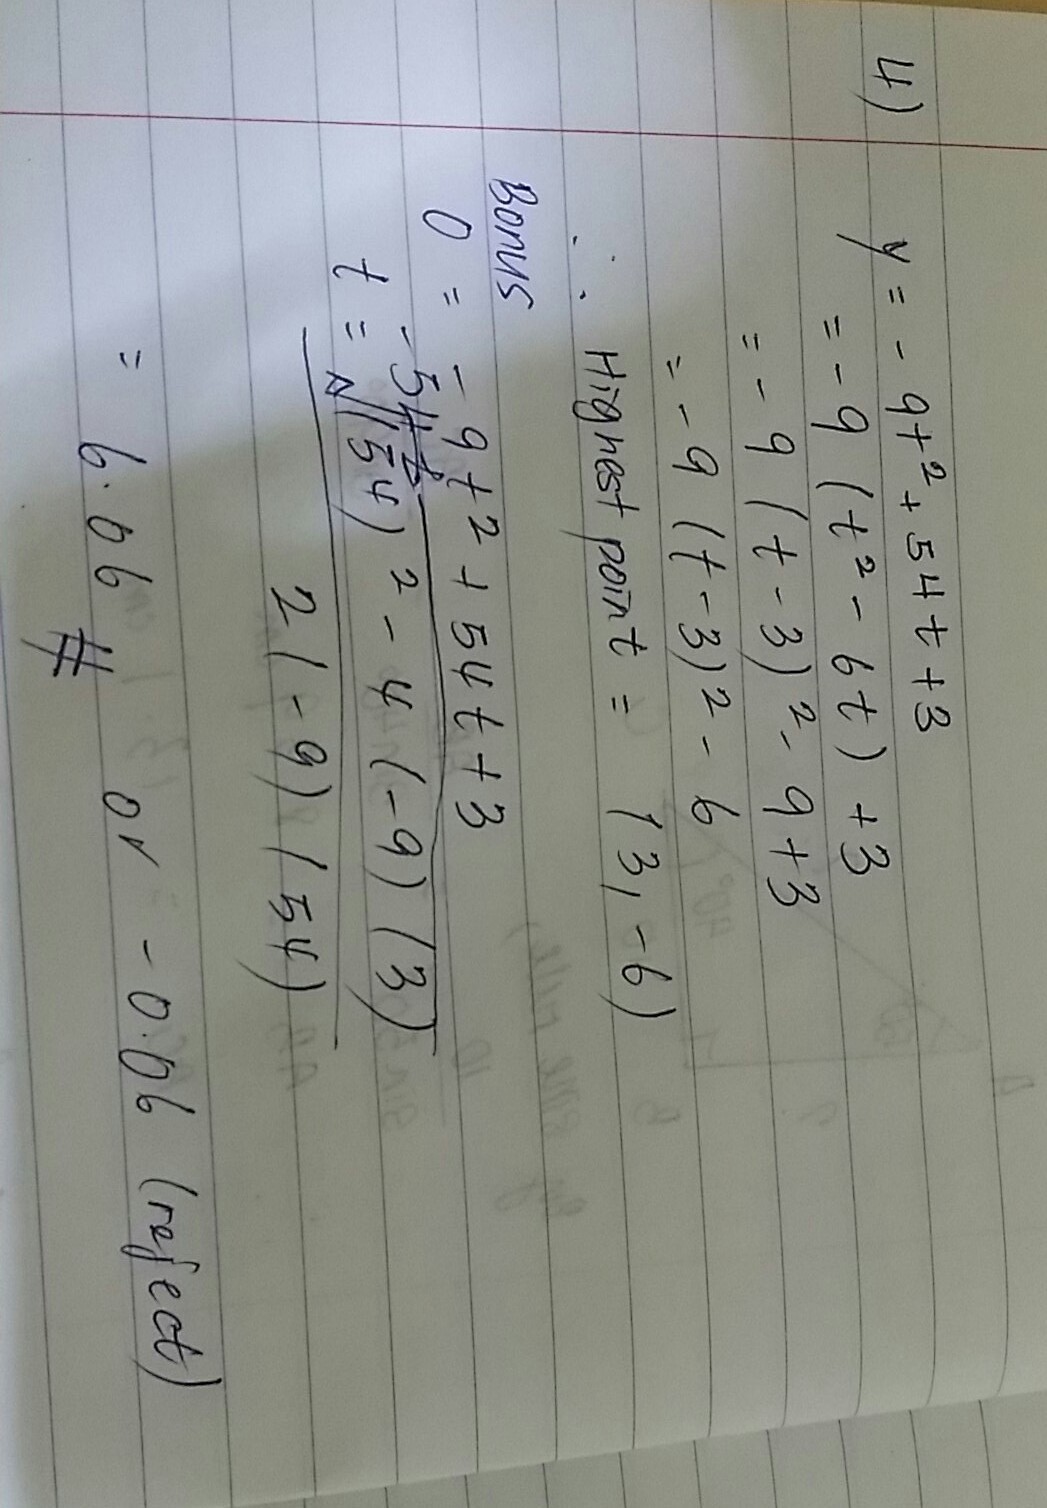 4) y = - 9t² + 54t + 3
= - 9 (t² - 6t) + 3
= - 9 (t - 3)² - 9 + 3
= - 9 (t - 3)² - 6
∴ Highest point = (3, -6)
Bonus
0 = - 9t² + 54t + 3
t = -54± √(54)² - 4(-9)(3)
2(-9)(54)
= 6.06 or = -0.06 (reject)
#